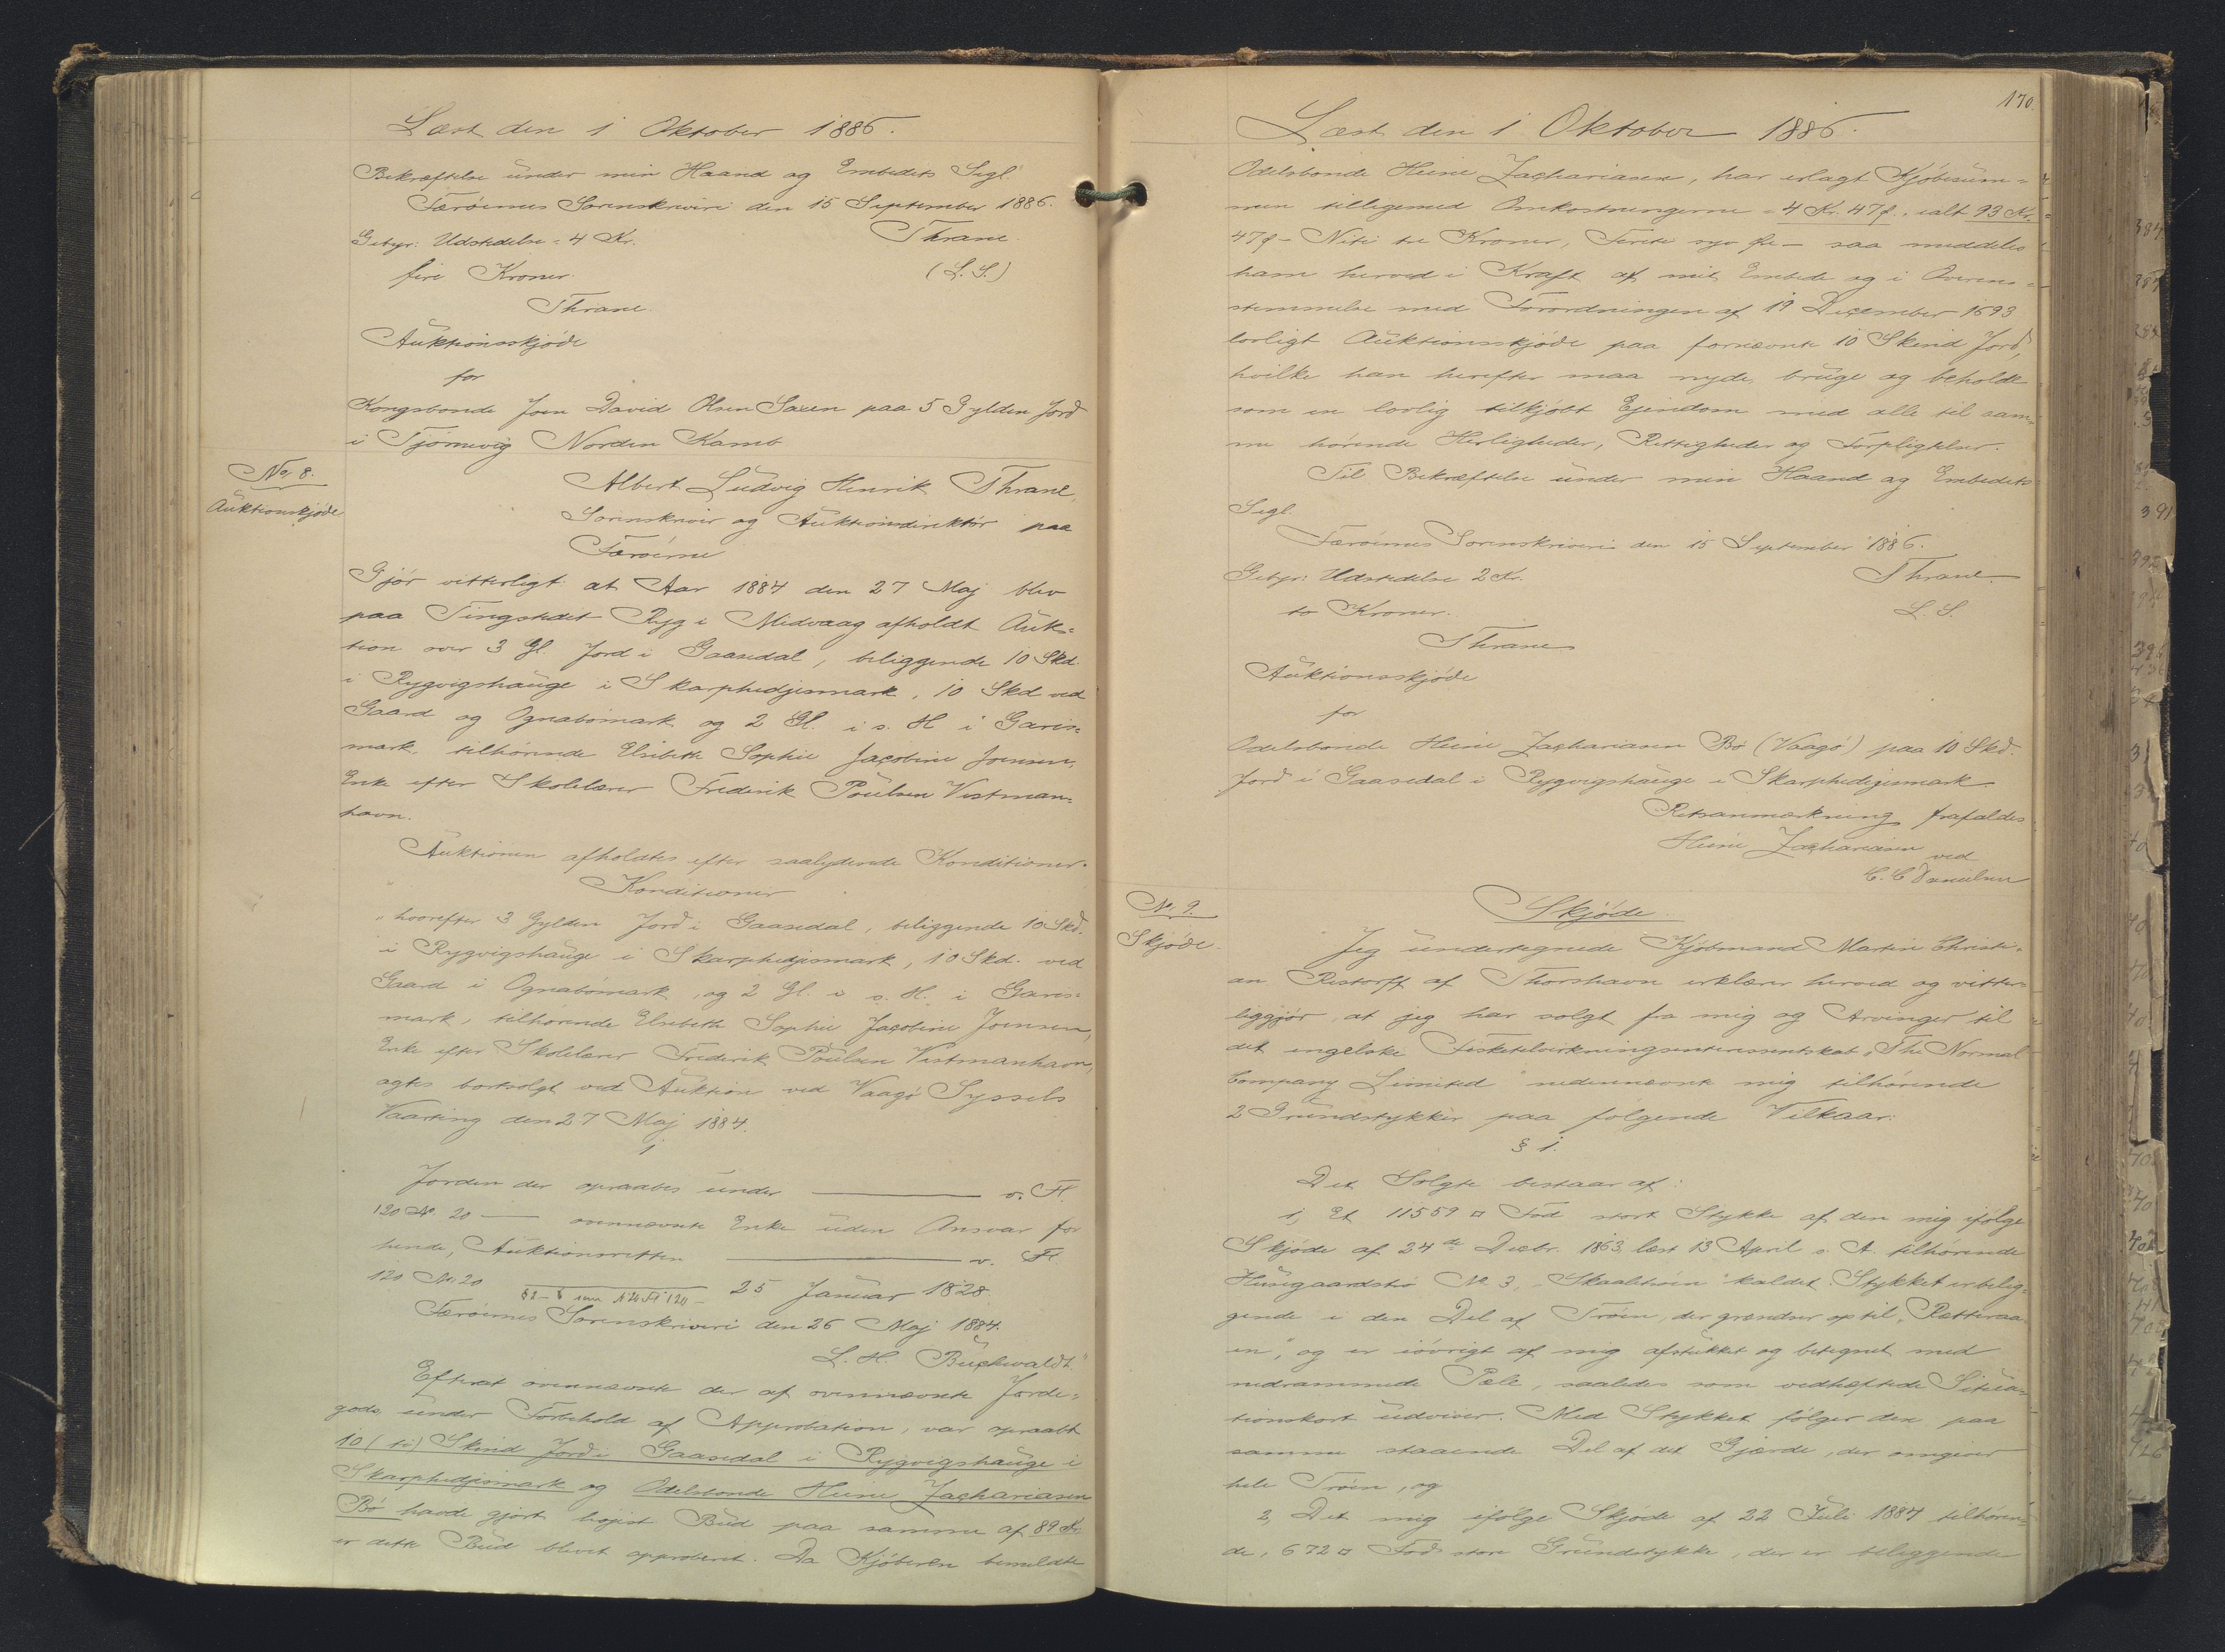 Læst den 1 Oktober 1886.
Bekræftelse under min Haand og Embedets Segl.
Færöernes Sorenskriveri den 15 September 1886.
Gebyr: Udstedelse = 4 Kr. Thrane.
fire Kroner (L. S.)
Thrane.
Auktionsskjöde
for
Kongsbonde Joen David Olsen Saxen paa 5 Gylden Jord
i Tjörnevig Norden Kamb
No. 8.
Auktionskjöde.
Albert Ludvig Henrik Thrane,
Sorenskriver og Auktionsdirektör paa
Færöerne
Gjör vitterligt: at Aar 1884 den 27 Maj blev
paa Tingstedet Ryg i Midvaag afholdt Auk=
tion over 3 Gl. Jord i Gaasedal, beliggende 10 Skd.
i Rygvigshauge i Skarphedjesmark, 10 Skd ved
Gaard og Ognabömark og 2 Gl. i s. H i Garis=
mark, tilhörende Elsebeth Sophie Jacobine Joensen,
Enke efter Skolelærer Frederik Poulsen Vestman=
havn.
Auktionen afholdtes efter saalydende Konditioner.
Konditioner
"hvorefter 3 Gylden Jord i Gaasedal, beliggende 10 Skd.
i Rygvigshauge i Skarphedjesmark, 10 Skd. ved
Gaard i Ognabömark, og 2 Gl. i s. H. i Garis=
mark, tilhörende Elsebeth Sophie Jacobine Joensen,
Enke efter Skolelærer Frederik Poulsen Vestmanhavn,
agtes bortsolgt ved Auktion ved Vaagö Syssels
Vaarting den 27 Maj 1884.
1
Jorden der opraabes under v. Fl.
120 No. 20 ovennævnte Enke uden Ansvar for
hende, Auktionsretten v. Fl.
120 No. 20 25 Januar 1828.
Færöernes Sorenskriveri den 26 Maj 1884.
L. H. Buchwaldt."
Efterat ovennævnte der af ovennævnte Jorde=
gods under Forbehold af Approbation, var opraabt
10 (ti) Skind Jord i Gaasedal i Rygvigshauge i
Skarphedjesmark og Odelsbonde Heine Zachariasen
Bö havde gjort höjest Bud paa samme af 89 Kr.
er dette Bud blevet approberet. Da Kjöberen bemeldte
170.
Læst den 1 Oktober 1886.
Odelsbonde Heine Zachariasen, har erlagt Kjöbesum=
men tilligemed Omkostningerne = 4 Kr. 47 f., ialt 93 Kr.
47 f - Niti tre Kroner, Firti syv - saa meddeles
ham herved i Kraft af mit Embede og i Overens=
stemmelse med Forordningen af 19 December 1693
lovligt Auktionsskjöde paa fornævnte 10 Skind Jord,
hvilke han herefter maa nyde, bruge og beholde
som en lovlig tilkjöbt Ejendom med alle til sam=
me hörende Herligheder, Rettigheder og Forpligtelser.
Til Bekræftelse under min Haand og Embedets
Segl.
Færöernes Sorenskriveri den 15 September 1886.
Gebyr: Udstedelse 2 Kr. Thrane.
to Kroner. L. S.
Thrane
Auktionsskjöde
for
Odelsbonde Heine Zachariasen Bö (Vaagö) paa 10 Skd.
Jord i Gaasedal i Rygvigshauge i Skarphedjesmark
Retsanmærkning frafaldes
Heine Zachariasen ved
C. C Danielsen
No. 9.
Skjöde.
Skjöde.
Jeg undertegnede Kjöbmand Martin Christi=
an Restorff af Thorshavn erklærer herved og vitter=
liggjör, at jeg har solgt fra mig og Arvinger til
det engelske Fisketilvirkningsinteressentskab "The Normal
Company Limited" nedennævnte mig tilhörende
2 Grundstykker paa fölgende Vilkaar:
§ 1.
Det Solgte bestaar af:
1, Et 11559 □ Fod stort Stykke af den mig ifölge
Skjöde af 24de Decbr. 1863, læst 13 April s. A. tilhörende
Husegaardströ No 3, "Skaaltroin" kaldet. Stykket er belig=
gende i den Del af Tröen, der grændser op til "Rættaraa
en", og er iövrigt af mig afstukket og betegnet med
nedrammede Pæle, saaledes som vedhæftede Situa=
tionskort udviser. Med Stykket fölger den paa
samme staaende Del af det Gjærde, der omgiver
hele Tröen, og
2, Det mig ifölge Skjöde af 22 Juli 1884 tilhören=
de, 672 □ Fod store Grundstykke, der er beliggende